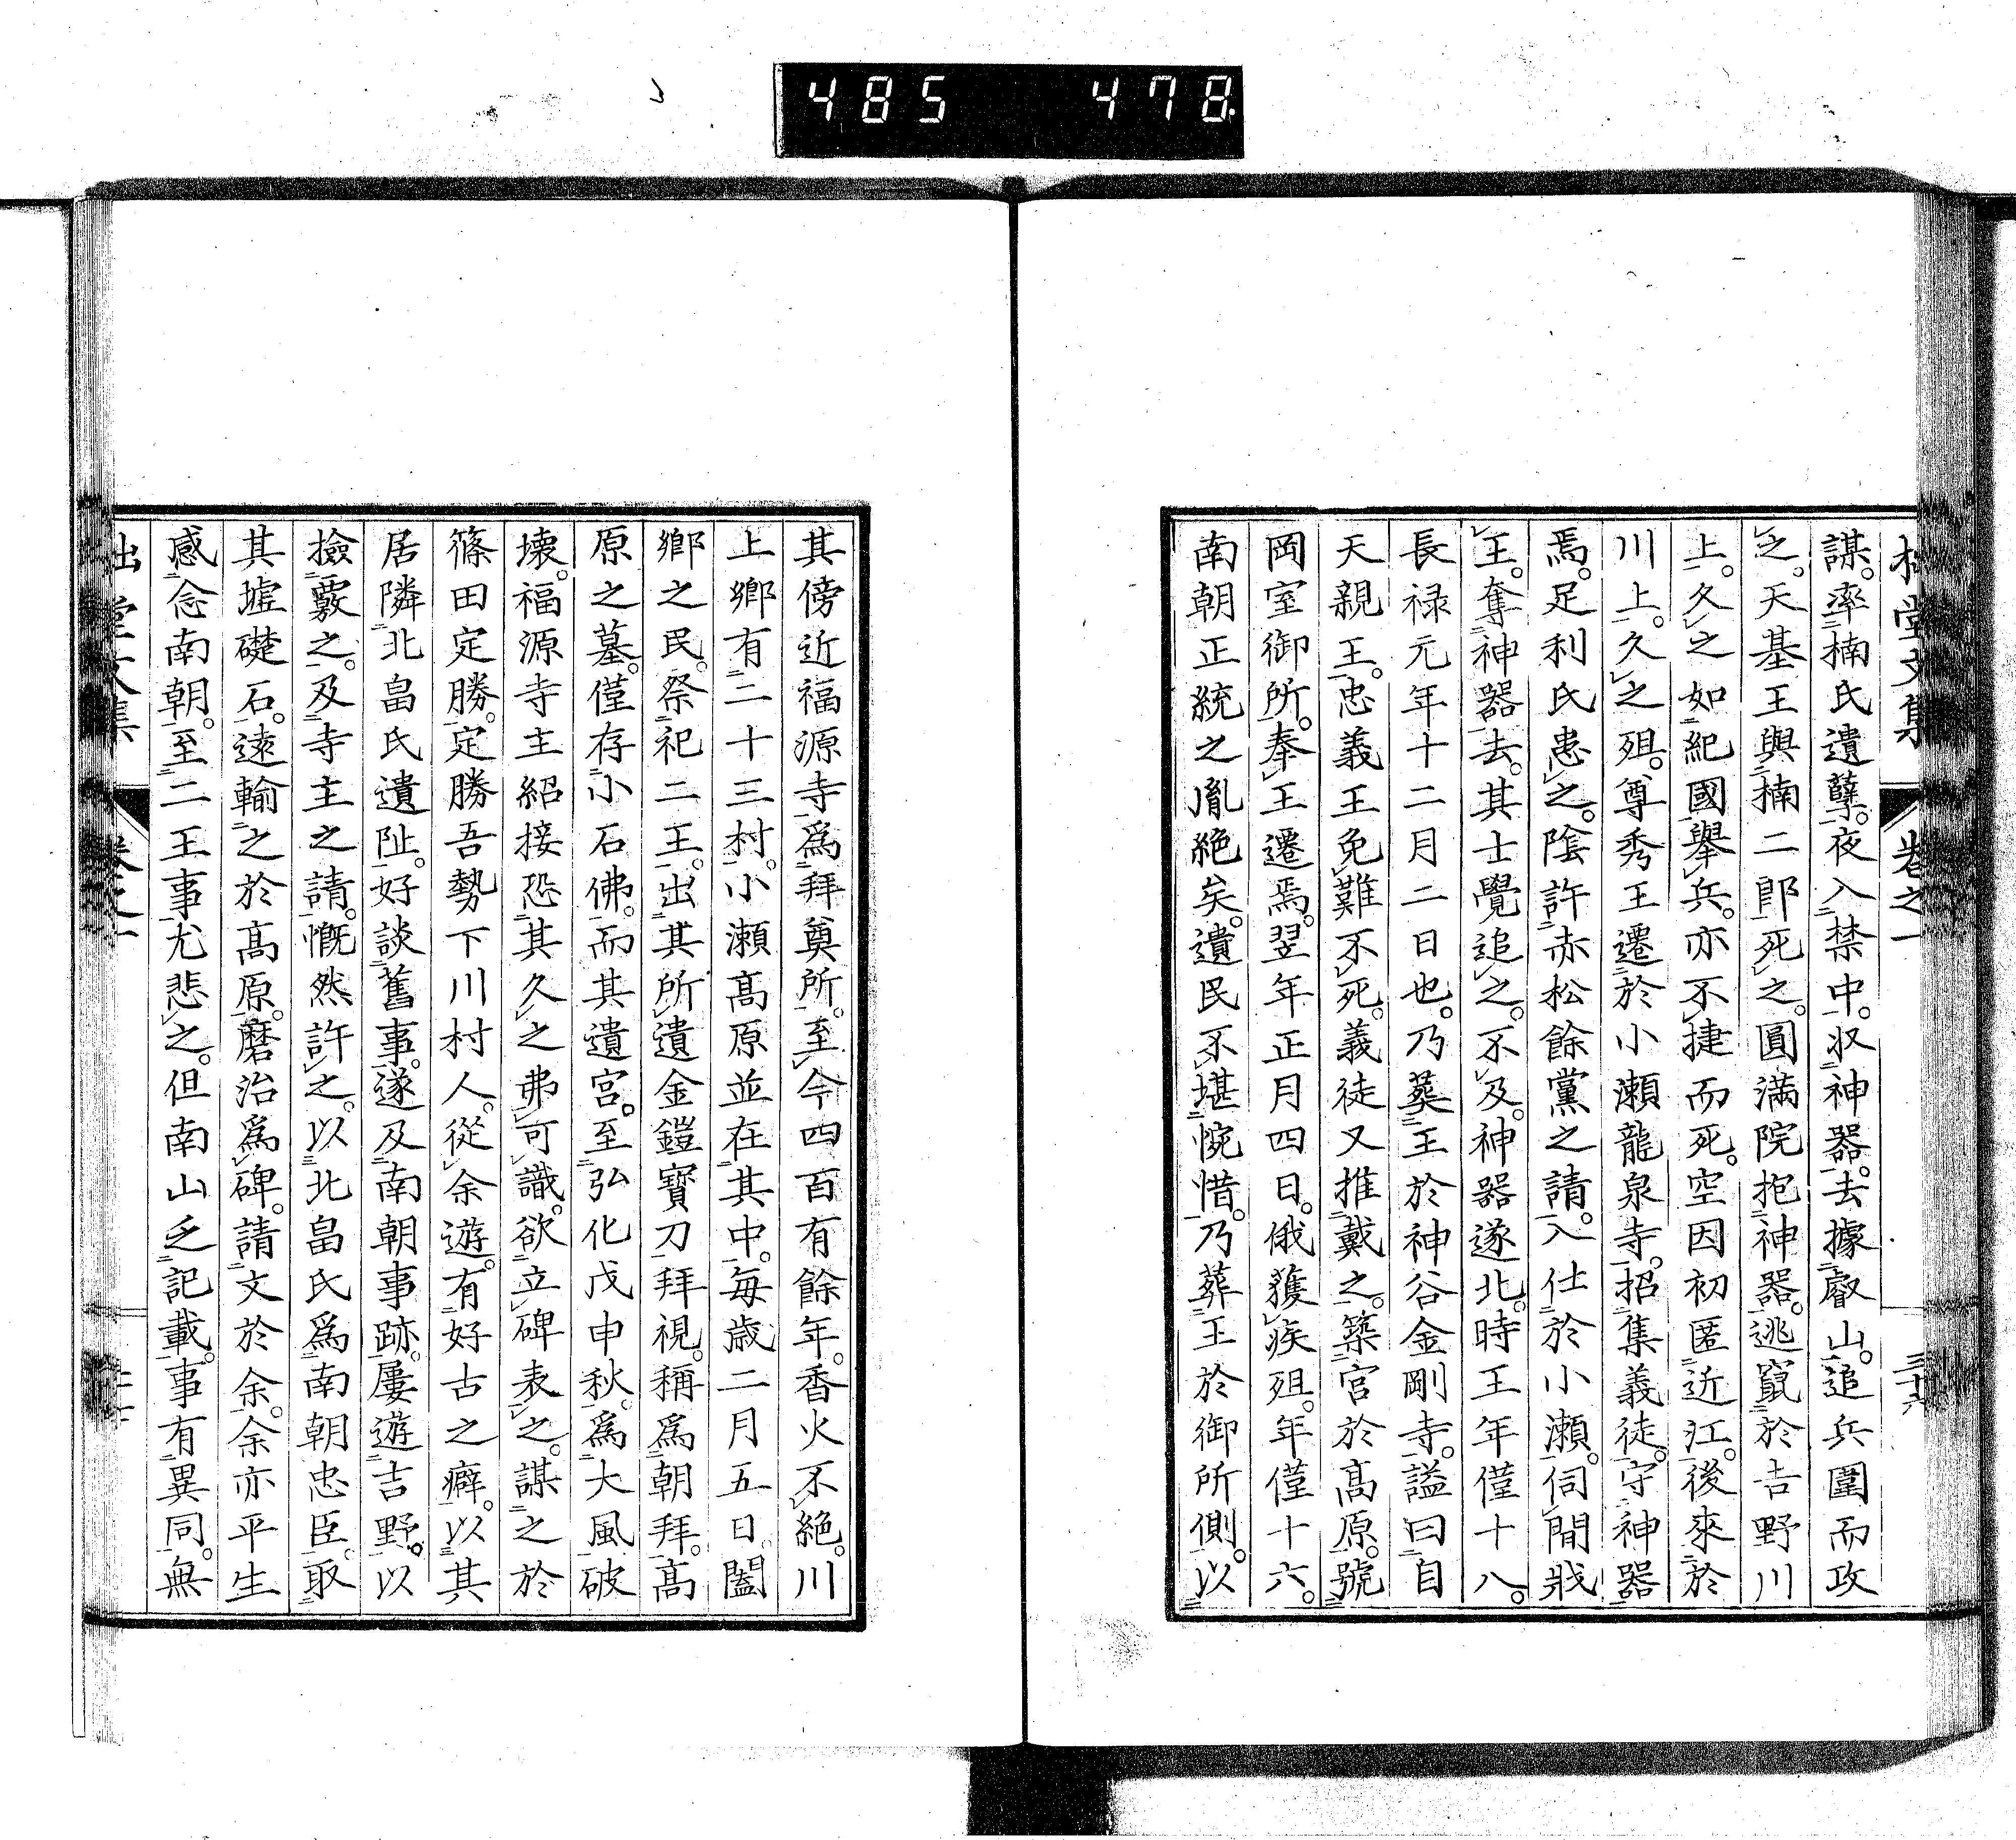 485 478
堂文集 卷之一 三十六
謀。率楠氏遺孽。夜入禁中。収神器。去據叡山。追兵圍而攻
之。天基王與楠二郎死之。圓滿院抱神器。逃竄於吉野川
上。久之如紀國舉兵。亦不捷而死。空因初匿近江。後來於
川上。久之殂。尊秀王遷於小瀬龍泉寺。招集義徒。守神器
焉。足利氏患之。陰許赤松餘黨之請。入仕於小瀬。伺間戕
王。奪神器去。其士覺追之。不及。神器遂北。時王年僅十八。
長禄元年十二月二日也。乃葬王於神谷金剛寺。謚曰自
天親王。忠義王免難不死。義徒又推戴之。築宮於髙原。號
岡室御所。奉王遷焉。翌年正月四日。俄獲疾殂。年僅十六。
南朝正統之胤絶矣。遺民不堪惋惜。乃葬王於御所側。以
其傍近福源寺爲拜奠所。至今四百有餘年。香火不絶。川
上鄉有二十三村。小瀬髙原並在其中。毎歳二月五日。闔
鄉之民。祭祀二王。出其所遺金鎧寶刀拜視。稱爲朝拜。髙
原之墓。僅存小石佛。而其遺宮。至弘化戊申秋。爲大風破
壊。福源寺主紹接恐其久之弗可識。欲立碑表之。謀之於
篠田定勝。定勝吾勢下川村人。從余遊。有好古之癖。以其
居隣北畠氏遺阯。好談舊事。遂及南朝事跡。屢遊吉野。以
撿覈之。及寺主之請。慨然許之。以北畠氏爲南朝忠臣。取
其墟礎石。遠輸之於髙原。磨治爲碑。請文於余。余亦平生
感念南朝。至二王事尤悲之。但南山乏記載。事有異同。無
堂文集